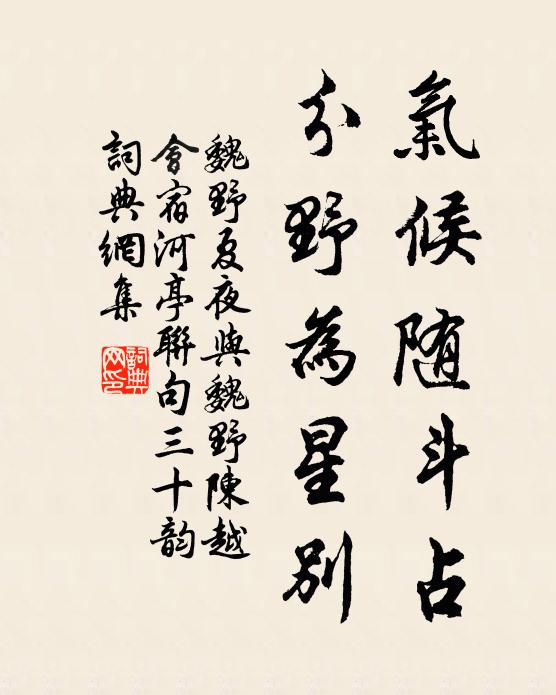 氣候随斗占
分野為星別
魏野夏夜與魏野陳越
會宿河亭聯句三十韵
詞典網集
詞典網印